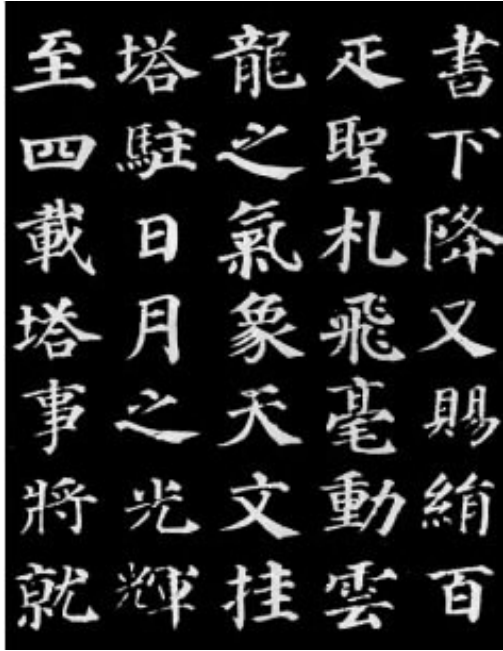 書下降又賜絹百
疋聖札飛毫動雲
龍之氣象天文挂
塔駐日月之光輝
至四載塔事將就